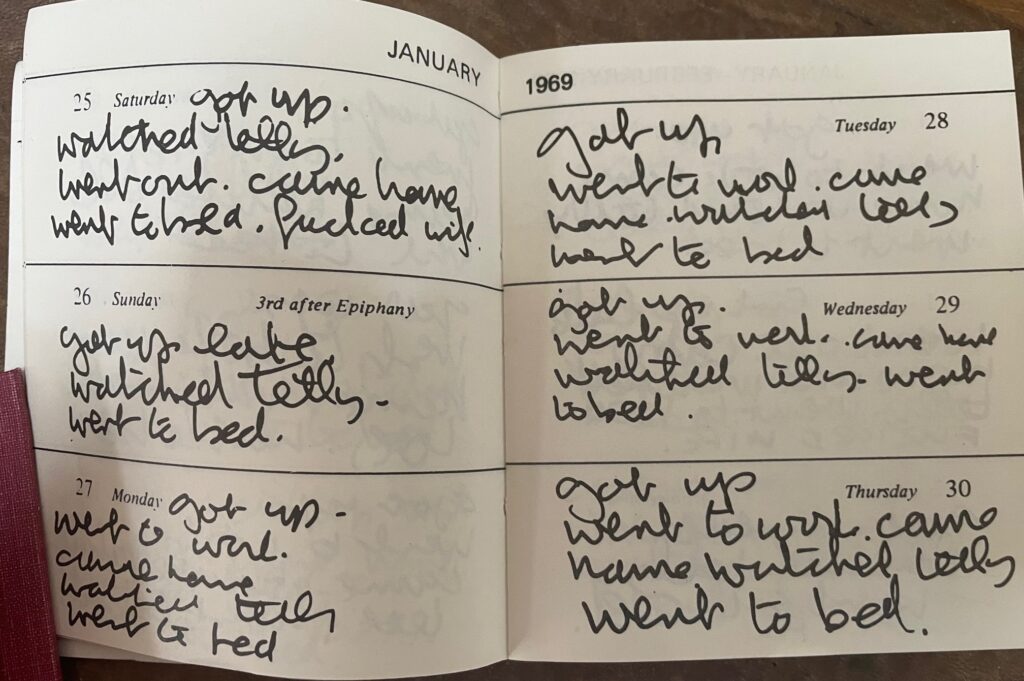 JANUARY
25 Saturday got up.
watched telly.
went out. came home
went to bed. fucked wife.
26 Sunday 3rd after Epiphany
got up late.
watched telly.
went to bed.
27 Monday got up.
went to work.
came home
watched telly
went to bed
1969
got up Tuesday 28
went to work. came
home. watched telly
went to bed
got up. Wednesday 29
went to work. came home
watched telly. went
to bed.
got up Thursday 30
went to work. came
home. watched telly
went to bed.